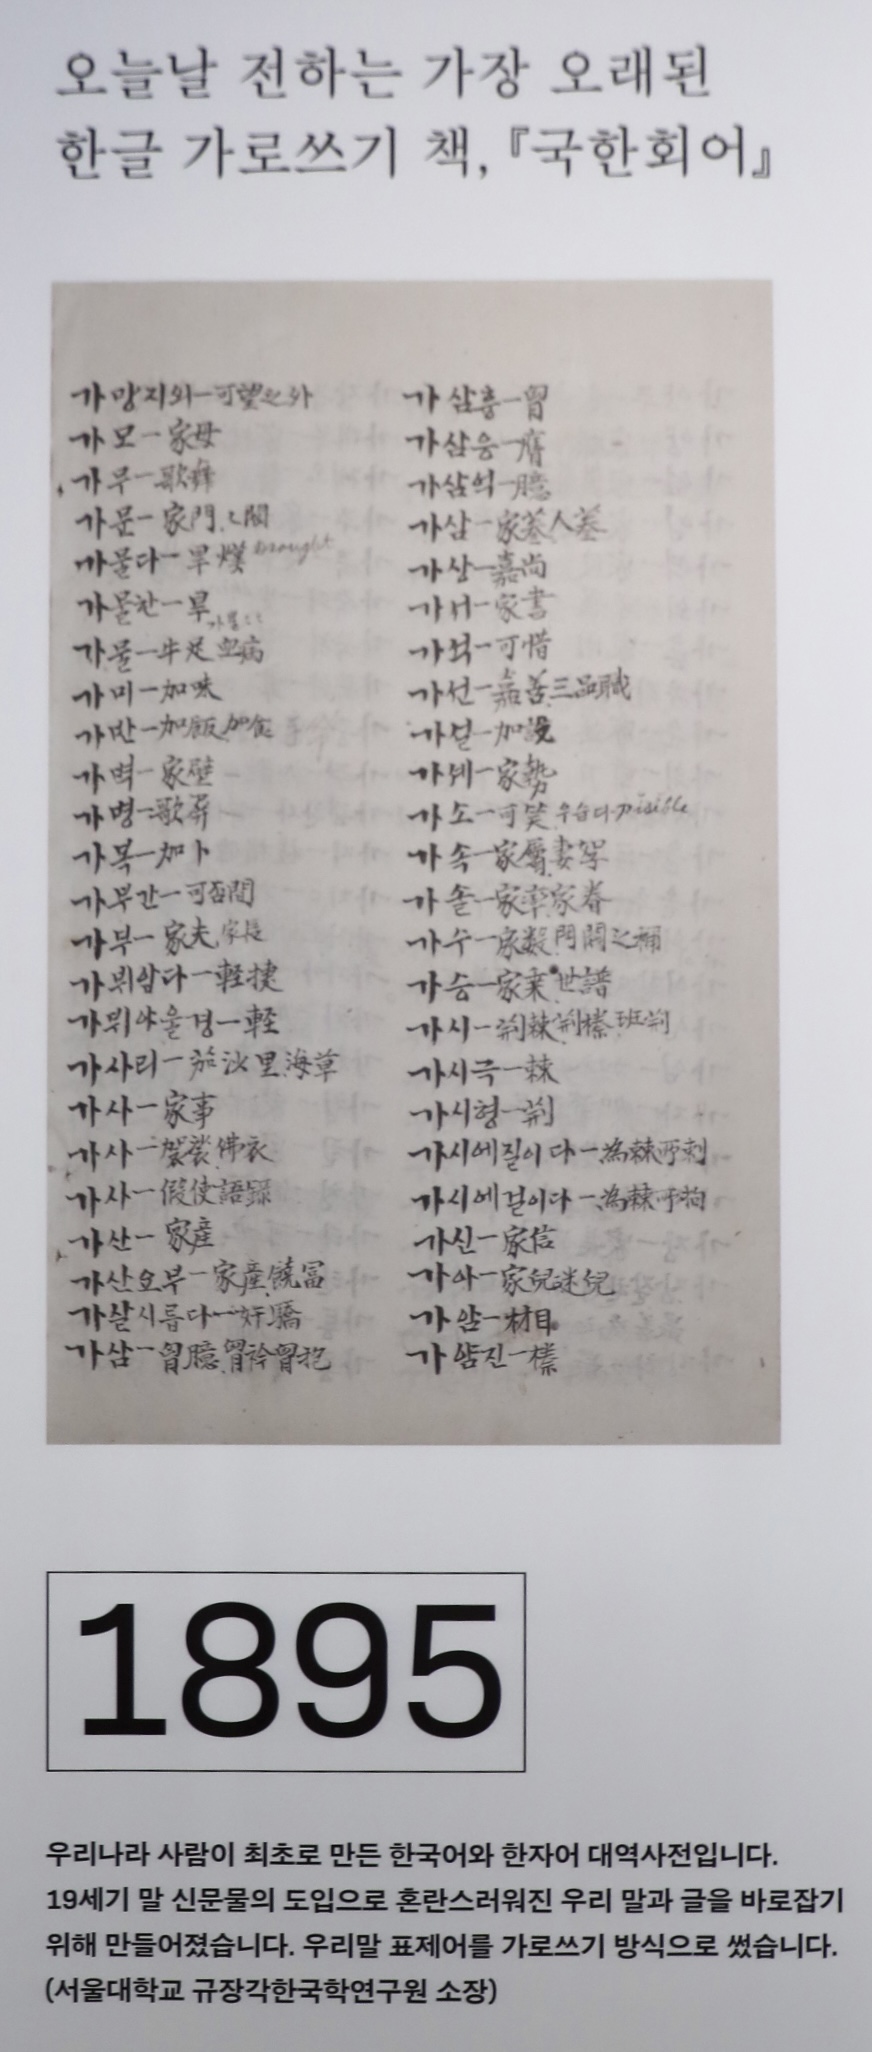 오늘날 전하는 가장 오래된
한글 가로쓰기 책,『국한회어』
가망지외一可望之外
가모一家母
가무一歌舞
가문一家門
가물다一旱
가물한一旱
가물一牛足
가미一加味
가반一加飯加食
가벽一家壁
가병一歌屛
가복一加卜
가부간一可否間
가부一家夫家長
가뷔얍다一輕捷
가뷔야울경一輕
가사리一茄沙里海草
가사一家事
가사一袈裟佛衣
가사一假使語錄
가산一家産
가산요부一家産饒冨
가살시릅다一奸驕
가삼一胷臆胷衿胷抱
가삼흉一胷
가삼응一膺
가삼억一臆
가삼一家蔘人蔘
가상一嘉尙
가셔一家書
가셕一可惜
가션一嘉善三品職
가셜一加設
가셰一家勢
가소一可笑 우습다 risible
가속一家屬妻孥
가솔一家率家眷
가수一家數門閥之稱
가승一家乘世譜
가시一荊棘荊榛班荊
가시극一棘
가시형一荊
가시에질이다一為棘所刺
가시에걸이다一為棘所拘
가신一家信
가아一家兒迷兒
가얌一榛
1895
우리나라 사람이 최초로 만든 한국어와 한자어 대역사전입니다.
19세기 말 신문물의 도입으로 혼란스러워진 우리 말과 글을 바로잡기
위해 만들어졌습니다. 우리말 표제어를 가로쓰기 방식으로 썼습니다.
(서울대학교 규장각한국학연구원 소장)